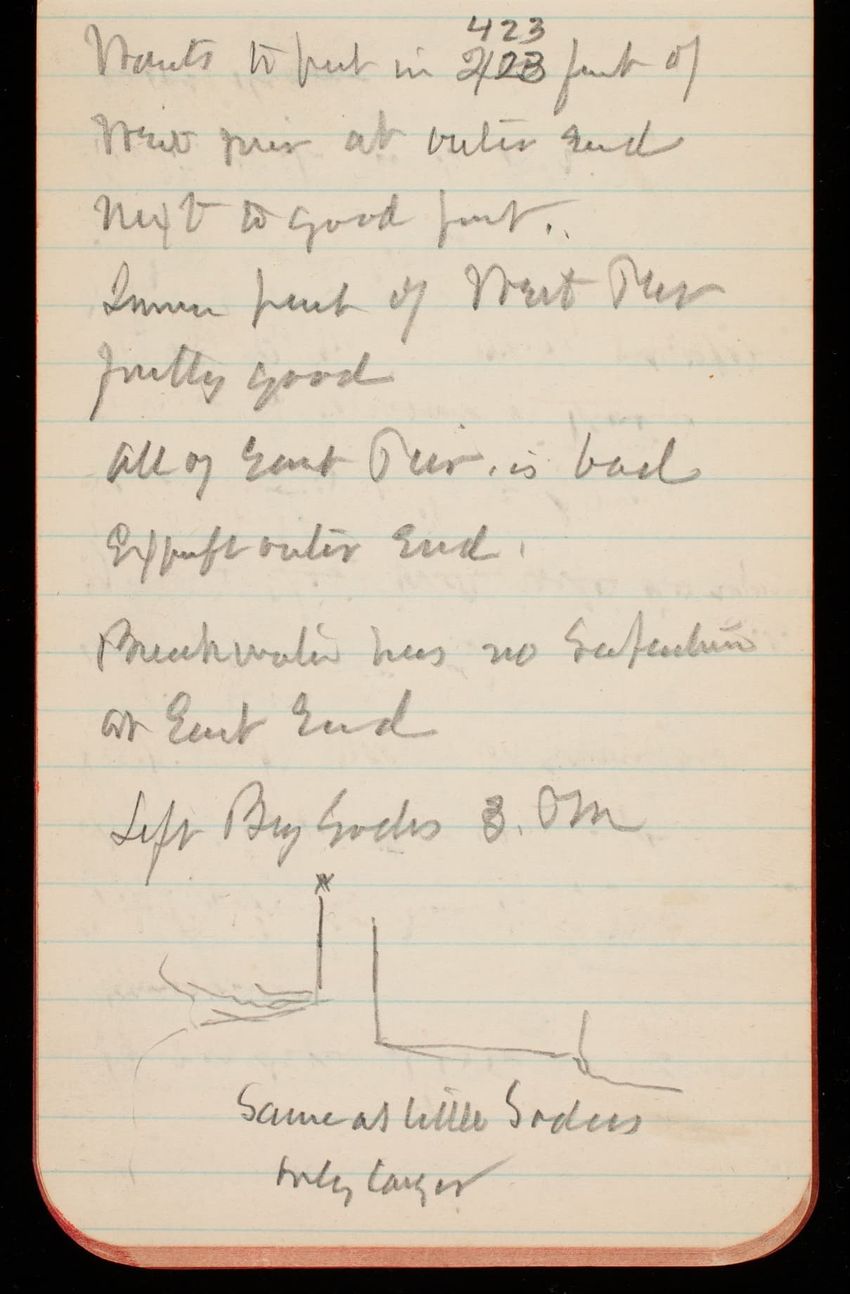 423
Wants to put in 2/23 feet of
West pier at outer End
Next to good part.
Inner part of West Pier
pretty good
All of East Pier. is bad
Except outer End.
Breakwater has no
at East End
Left Big Sodus 3. PM
Same as little Sodus
only larger